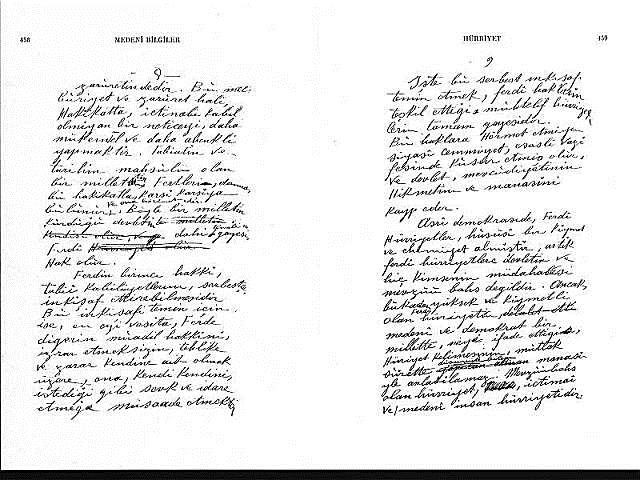 458
MEDENİ BİLGİLER
8
zarûretindedir. Bu mec-
bûriyet ve zarûret hali
Hakikatta, ictinabı kabil
olmıyan bir neticeyi, daha
mükemmel ve daha ahenkli
yapmaktır. Tabiatın ve
tarihin mahsulü olan
bir millet Fertlerin, daima,
bu hakikatla karşı karşıya
Böyle bir milletin
kurduğu devletin
dahi gayesi
Ferdi
Hak olur.
Ferdin birinci hakkı,
tabiî kabiliyetlerini, serbestçe
inkişaf ettirebilmesidir.
Bu inkişafı temin için,
ise, en eyi vasıta, Ferde
diğerin müsadil hakkını,
izrar etmeksizin, tehlike
ve zarar kendine ait olmak
üzere, ona, kendi kendini,
istediği gibi sevk ve idare
etmeğe müsaade etmektir
HÜRRİYET
459
9
İşte bu serbest inkişafı
temin etmek, ferdi hakların
teşkil ettiği, muhtelif hürriyet-
lerin tamam gayesidir.
Bu haklara Hörmet etmiyen
siyasî cemiyet, esaslı vazi-
fesinde kusur etmiş olur,
ve devlet, mevcudiyetinin
Hikmetini ve manasını
kayp eder.
Asrî demokraside, Ferdi
Hürriyetler, hususî bir kıymet
ve ehemmiyet almıştır, artık
ferdi hürriyetlere devletin ve
hiç kimsenin müdahalesi
mevzuu bahs değildir. Ancak,
bu kadar yüksek ve kıymetli
olan Ferdi hürriyetin,
medenî ve demokrat bir
millette, neyi ifade ettiği,
Hürriyet kelimesinin, mutlak
surette manasi
yle anlaşılamaz. Mevzuubahs
olan hürriyet, ictimaî
ve medenî insan hürriyetidir.